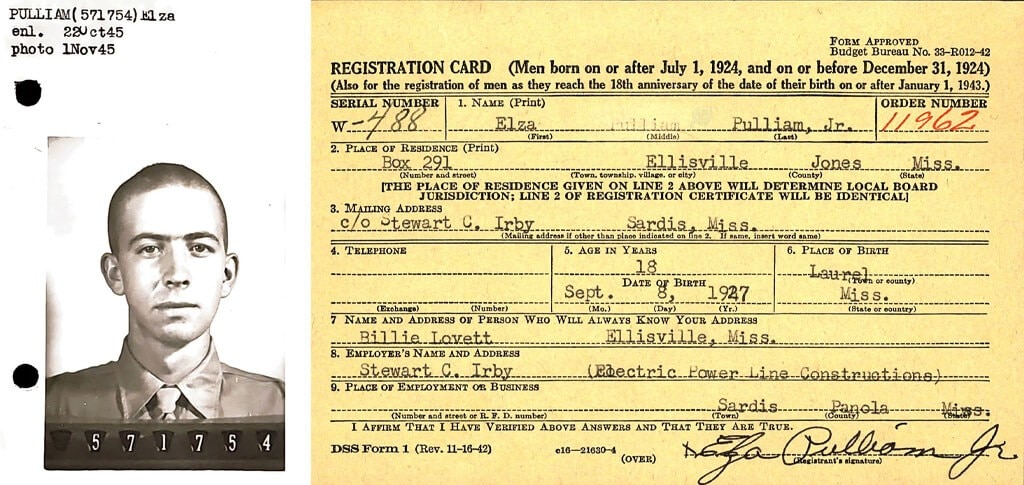 PULLIAM(571754)Elza
enl. 22Oct45
photo 1Nov45
5 7 1 7 5 4
FORM APPROVED
Budget Bureau No. 33-R012-42
REGISTRATION CARD (Men born on or after July 1, 1924, and on or before December 31, 1924)
(Also for the registration of men as they reach the 18th anniversary of the date of their birth on or after January 1, 1943.)
SERIAL NUMBER 1. NAME (Print) ORDER NUMBER
W-488 Elza Pulliam Pulliam, Jr. 11962
(First) (Middle) (Last)
2. PLACE OF RESIDENCE (Print)
Box 291 Ellisville Jones Miss.
(Number and street) (Town, township, village, or city) (County) (State)
[THE PLACE OF RESIDENCE GIVEN ON LINE 2 ABOVE WILL DETERMINE LOCAL BOARD
JURISDICTION; LINE 2 OF REGISTRATION CERTIFICATE WILL BE IDENTICAL]
3. MAILING ADDRESS
c/o Stewart C. Irby Sardis, Miss.
(Mailing address if other than place indicated on line 2. If same, insert word same)
4. TELEPHONE 5. AGE IN YEARS 6. PLACE OF BIRTH
18 Laurel
(Town or county)
DATE OF BIRTH
Sept. 8, 1927 Miss.
(Exchange) (Number) (Mo.) (Day) (Yr.) (State or country)
7 NAME AND ADDRESS OF PERSON WHO WILL ALWAYS KNOW YOUR ADDRESS
Billie Lovett Ellisville, Miss.
8. EMPLOYER'S NAME AND ADDRESS
Stewart C. Irby (Electric Power Line Constructions)
9. PLACE OF EMPLOYMENT OR BUSINESS
Sardis Panola Miss.
(Number and street or R. F. D. number) (Town) (County) (State)
I AFFIRM THAT I HAVE VERIFIED ABOVE ANSWERS AND THAT THEY ARE TRUE.
DSS Form 1 (Rev. 11-16-42) c16-21630-4 Elza Pulliam Jr.
(OVER) (Registrant's signature)